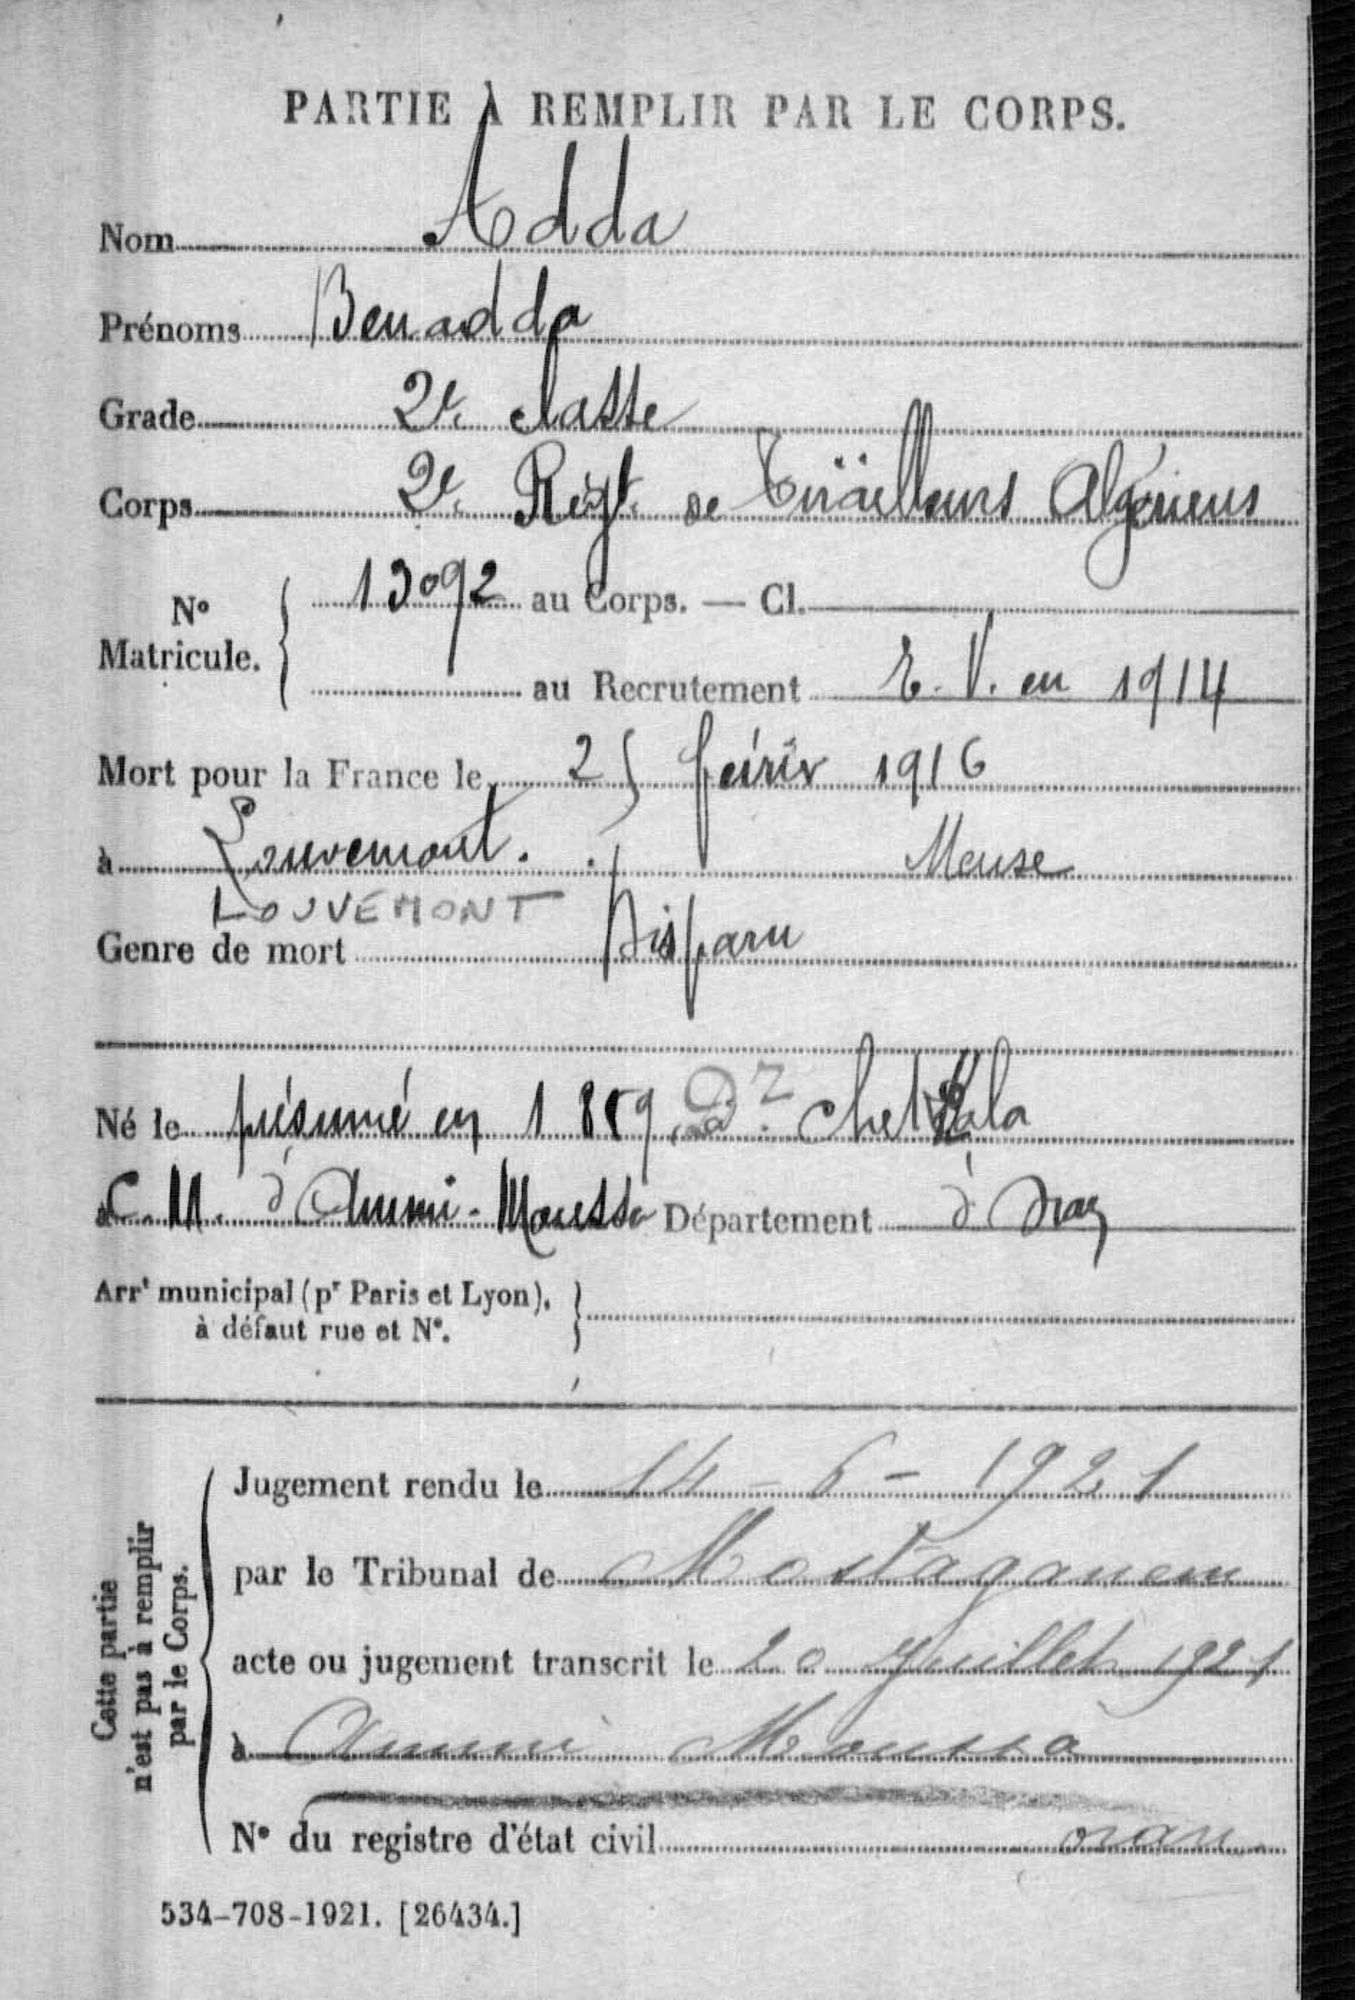 PARTIE À REMPLIR PAR LE CORPS.
Nom Adda
Prénoms Benadda
Grade 2e classe
Corps 2e Regt de Tirailleurs Algériens
No Matricule. 13092 au Corps. — Cl.
au Recrutement E. V. en 1914
Mort pour la France le 25 février 1916
à Louvemont. Meuse
LOUVEMONT
Genre de mort Disparu
Né le présumé en 1889 Dr
à C. M. d'Ammi-Moussa Département d'Oran
Arrt municipal (pr Paris et Lyon),
à défaut rue et No.
Cette partie
n'est pas à remplir
par le Corps.
Jugement rendu le 14-6-1921
par le Tribunal de Mostaganem
acte ou jugement transcrit le 20 Juillet 1921
à Ammi Moussa
No du registre d'état civil oran
534-708-1921. [26434.]